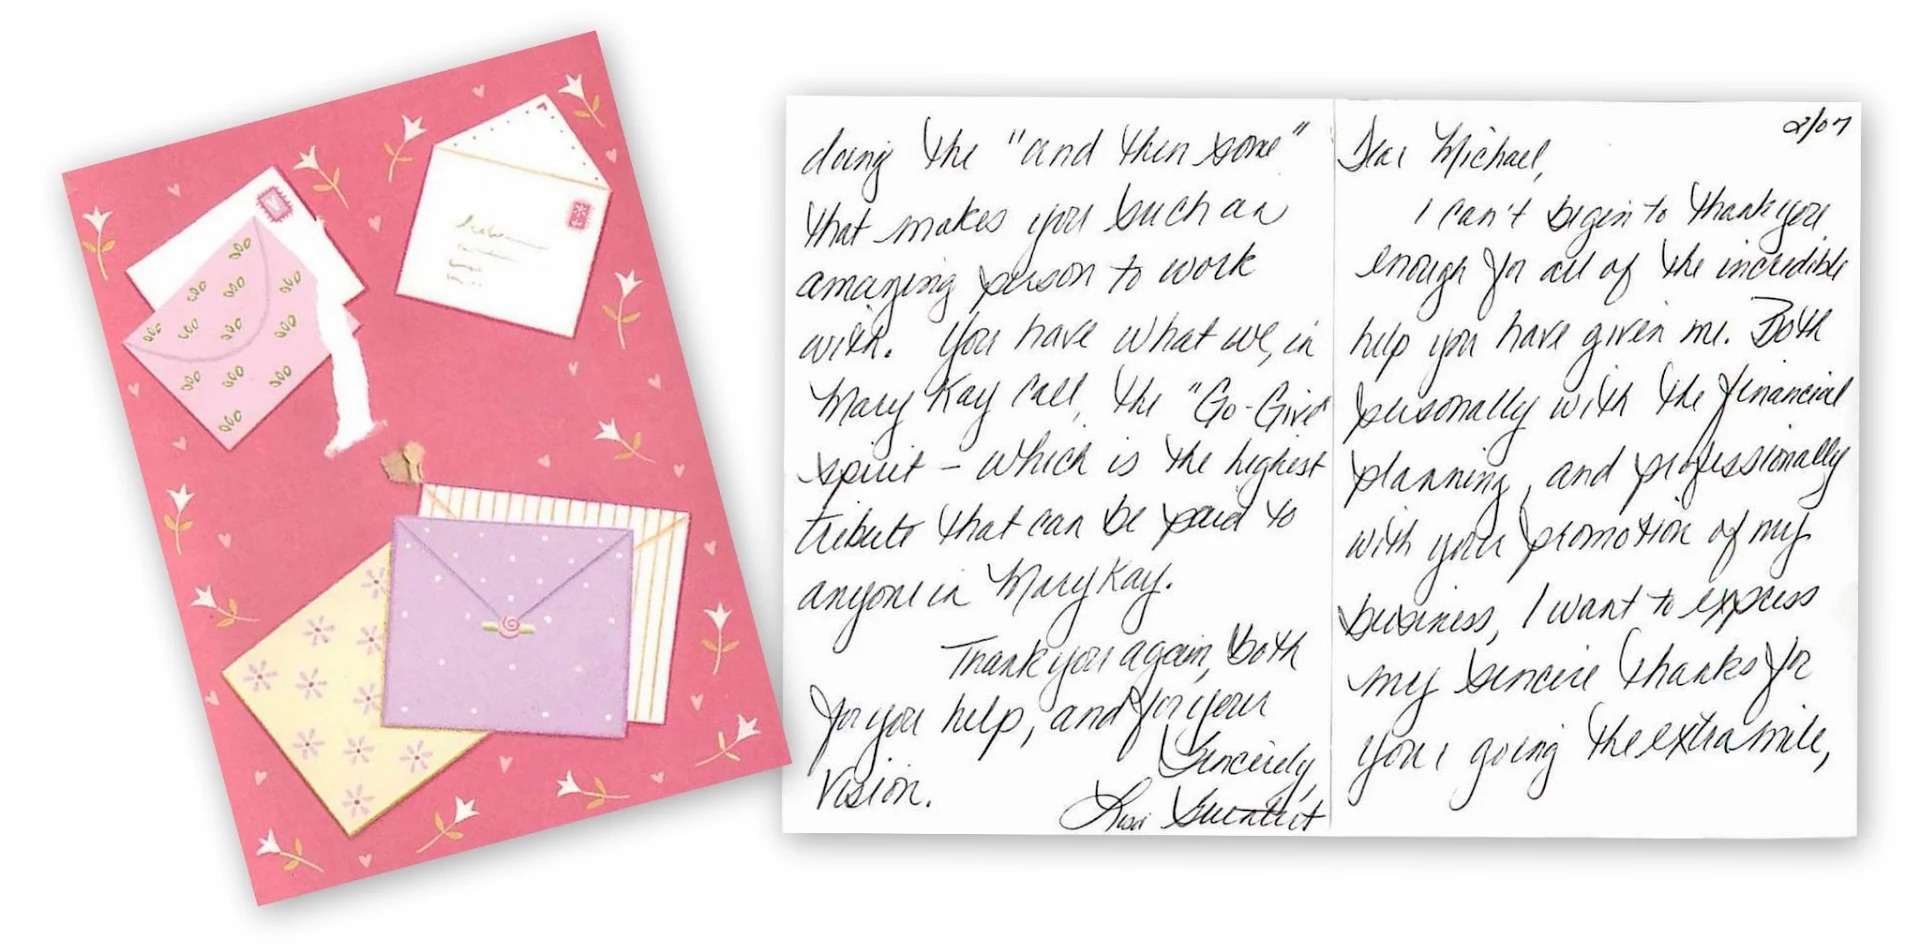 2/07
Dear Michael,
I can't begin to thank you
enough for all of the incredible
help you have given me. Both
personally with the financial
planning, and professionally
with your promotion of my
business, I want to express
my sincere thanks for
your going the extra mile,
doing the "and then some"
that makes you such an
amazing person to work
with. You have what we, in
Mary Kay call, the "Go-Give"
spirit – which is the highest
tribute that can be paid to
anyone in Mary Kay.
Thank you again, both
for your help, and for your
Vision.
Sincerely,